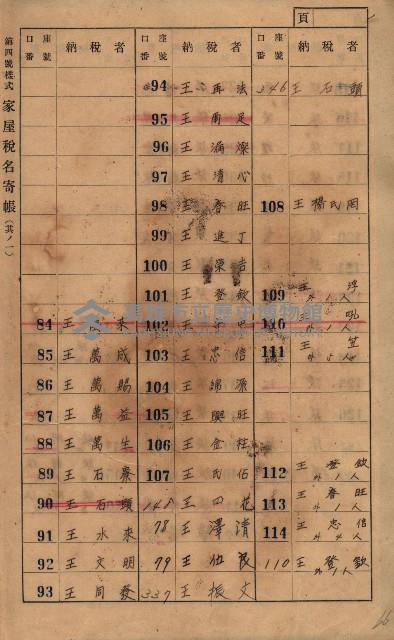 頁
第四號樣式 家屋稅名寄帳(其ノ一)
口座番號 納稅者
84 王 來
85 王萬成
86 王萬賜
87 王萬益
88 王萬生
89 王石
90 王石頭
91 王水來
92 王文明
93 王同發
口座番號 納稅者
94 王再法
95 王 足
96 王 燦
97 王清心
98 王春旺
99 王進丁
100 王榮吉
101 王登欽
102 王
103 王忠信
104 王 源
105 王興旺
106 王金柱
107 王氏
148 王四花
78 王澤清
79 王 良
337 王振文
口座番號 納稅者
346 王石頭
108 王楊氏罔
109 王 浮 外1人
110 王 外1人
111 王 外5人
112 王登欽 外1人
113 王春旺 外1人
114 王忠信 外4人
110 王登欽 外1人
高雄市立歷史博物館